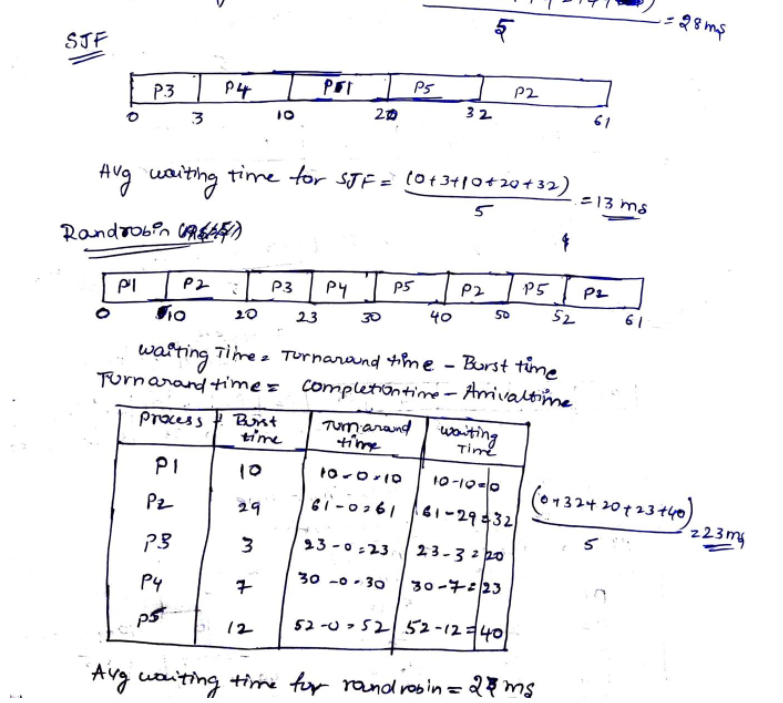 5 = 28ms
SJF
P3 P4 P1 P5 P2
0 3 10 20 32 61
Avg waiting time for SJF = (0+3+10+20+32) = 13 ms
5
Randrobin
P1 P2 P3 P4 P5 P2 P5 P2
0 10 20 23 30 40 50 52 61
waiting Time = Turnarand time - Burst time
Turnarand time = completiontime - Arrivaltime
Process Burst time Turnarand time waiting Time
P1 10 10-0=10 10-10=0
P2 29 61-0=61 61-29=32
P3 3 23-0=23 23-3=20
P4 7 30-0=30 30-7=23
P5 12 52-0=52 52-12=40
(0+32+20+23+40) = 23ms
5
Avg waiting time for randrobin = 23 ms